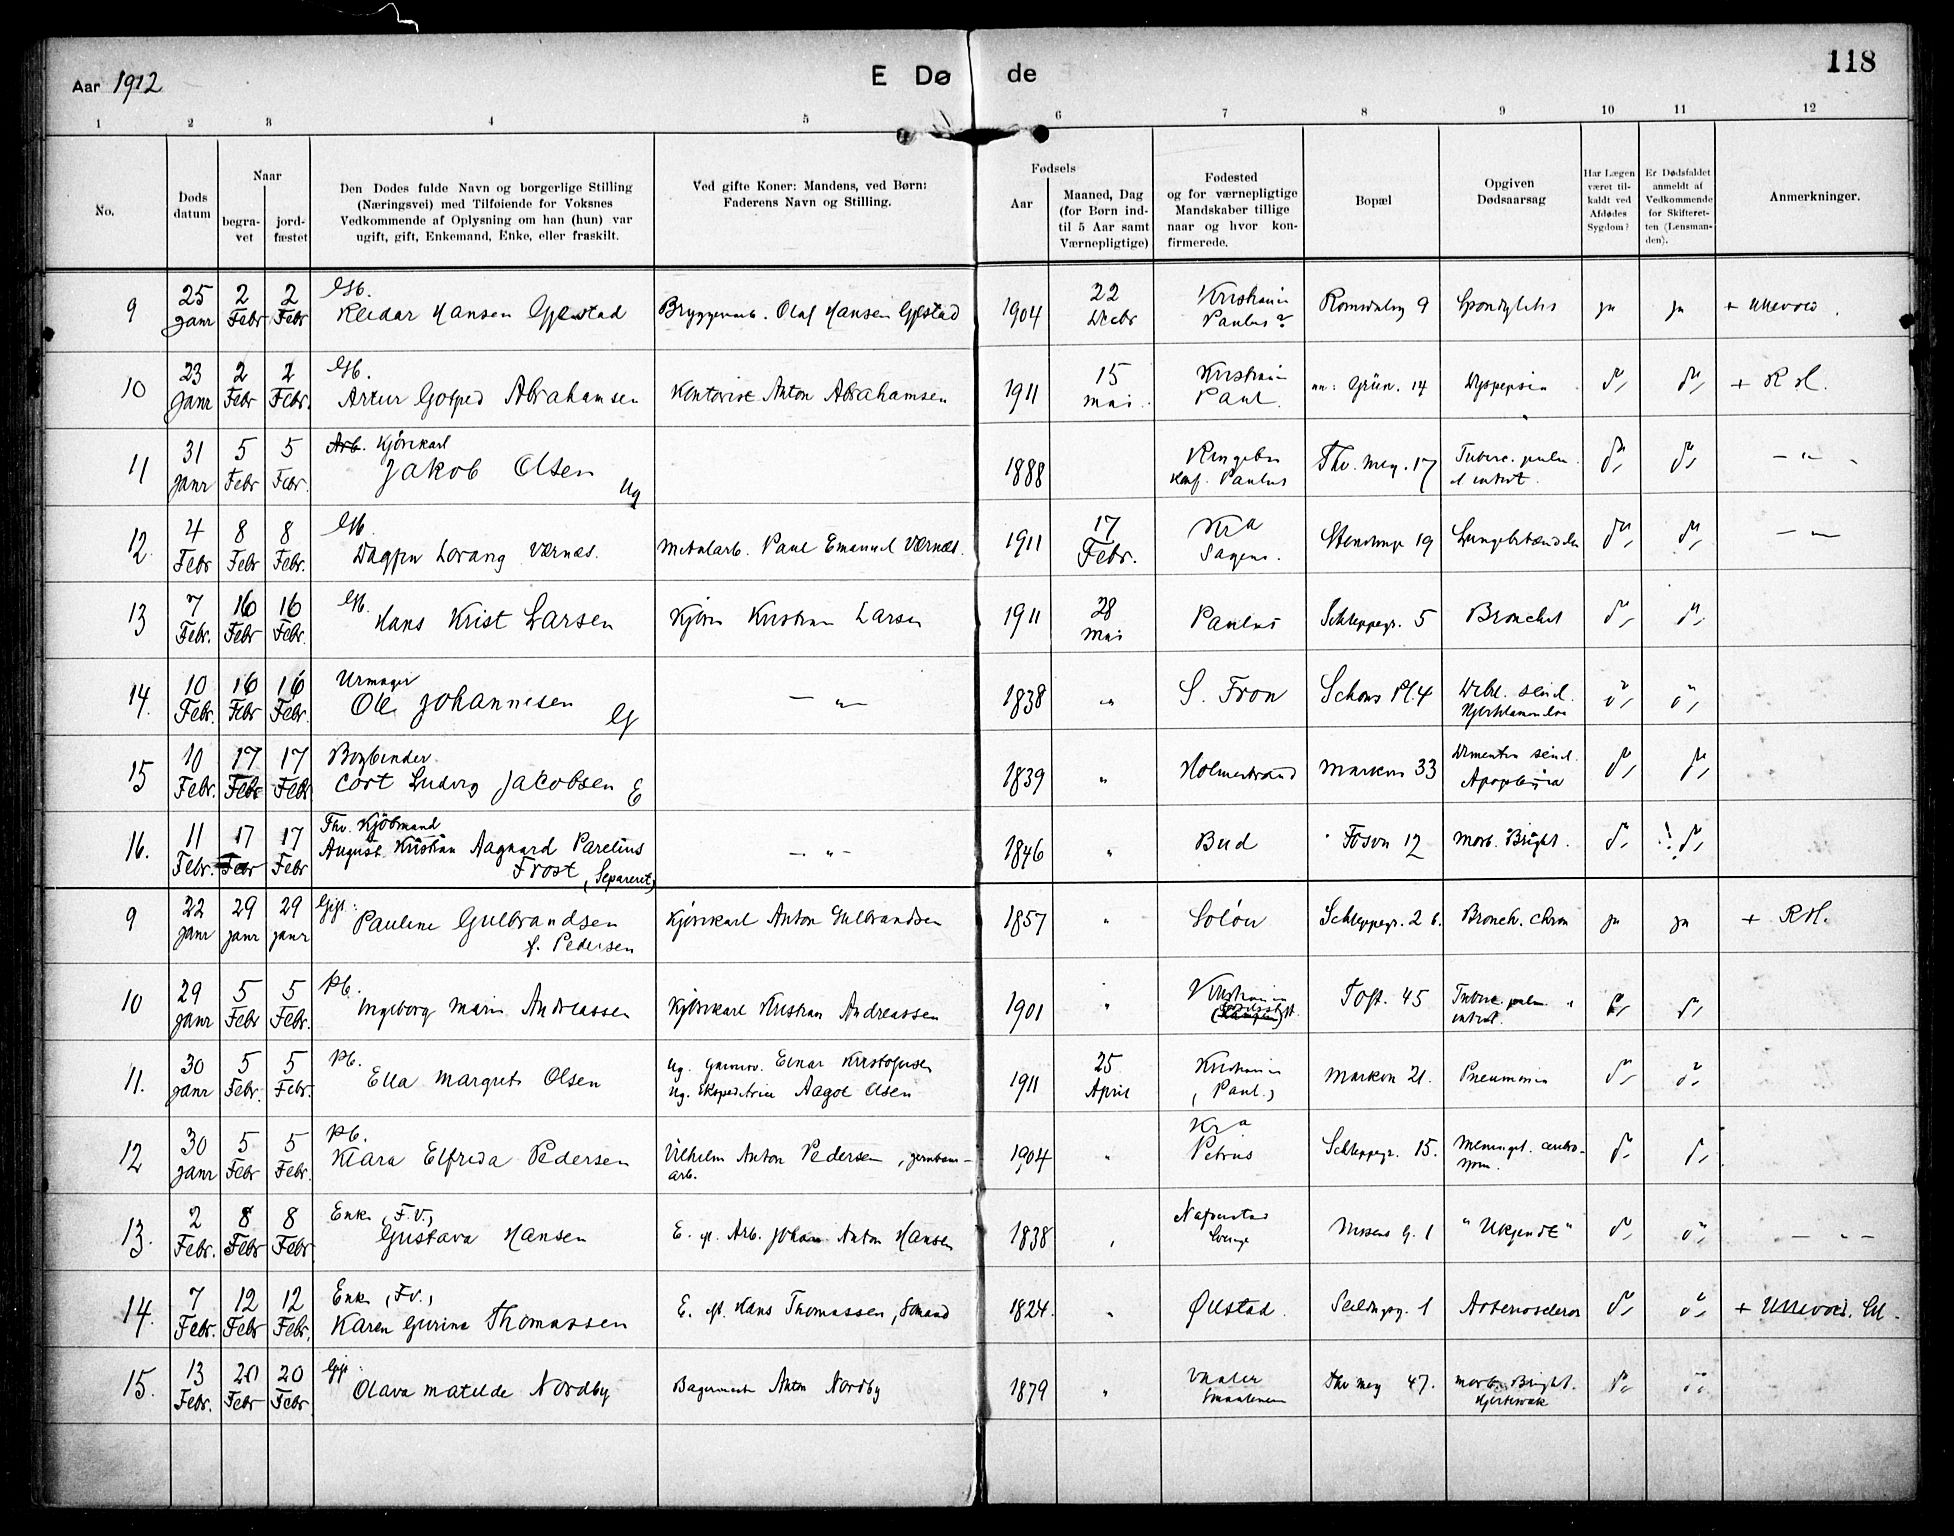 Aar 1912 E Dø de 118
1 2 3 4 5 6 7 8 9 10 11 12
No.
Døds datum
Naar
begra-vet
jord-fæstet
Den Dødes fulde Navn og borgerlige Stilling
(Næringsvei) med Tilføiende for Voksnes
Vedkommende af Oplysning om han (hun) var
ugift, gift, Enkemand, Enke, eller fraskilt.
Ved gifte Koner: Mandens, ved Børn:
Faderens Navn og Stilling.
Fødsels
Aar
Maaned, Dag
(for Børn ind-
til 5 Aar samt
Værnepligtige)
Fødested
og for værnepligtige
Mandskaber tillige
naar og hvor kon-
firmerede.
Bopæl
Opgiven
Dødsaarsag
Har Lægen
været til-
kaldt ved
Afdødes
Sygdom?
Er Dødsfaldet
anmeldt af
Vedkommende
for Skifteret-
ten (Lensman-
den).
Anmerkninger.
9 25 Janr 2 Febr 2 Febr. Reidar Hansen Gjestad Olaf Hansen Gjestad 1904 22 Decbr Kristiania Paulus Romsdalsg 9 ja ja + Ullevold.
10 23 Janr 2 Febr 2 Febr. Artur Gotfred Abrahamsen Kontorist Anton Abrahamsen 1911 15 Mai Kristiania Paul. Grün. 14 Dyspepsia do do + R H.
11 31 Janr 5 Febr 5 Febr. Arb. Kjørekarl Jakob Olsen Ug 1888 Ringebu Konf. Paulus Thv. Mey. 17 Tuberc. pulm. et intest. do do — " —
12. 4 Febr 8 Febr 8 Febr. Dagfin Lorang Værnes. Metalarb. Paul Emanuel Værnes. 1911 17 Febr. Kra Sagene. Stensunds 19 do do — " —
13 7 Febr. 16 Febr 16 Febr. Hans Krist Larsen Kristian Larsen 1911 28 Mai Paulus Schleppegr. 5 Bronchit do do
14. 10 Febr. 16 Febr 16 Febr. Urmager Ole Johannesen G — " — 1838 " S. Fron Schous Pl. 4 do do
15 10 Febr. 17 Febr 17 Febr. Bogbinder Cort Ludvig Jacobsen E 1839 " Holmestrand Markvn 33 Dementia senil. Apoplexia do do
16. 11 Febr. 17 Febr 17 Febr Fhv. Kjøbmand August Kristian Aagaard Parelius Frost (Separeret) — " — 1846 " Bud Fossvn 12 Morb. Bright. do ! do
9 22 Janr 29 Janr 29 Janr Gift: Pauline Gulbrandsen f. Pedersen Kjørekarl Anton Gulbrandsen 1857 " Soløer Schleppegr. 2 b. Bronch. chron ja ja + RH.
10 29 Janr 5 Febr 5 Febr. Pb. Ingeborg Marie Andreassen Kjørekarl Kristian Andreassen 1901 " Kristiania Toft. 45 Tuberc. pulm. et intest. do do
11. 30 Janr 5 Febr. 5 Febr. Pb. Ella Margrete Olsen Ug. Einar Kristofersen Ug. Ekspeditrice Aagot Olsen 1911 25 April Kristiania (Paul.) Markvn 21. Pneumonia do do
12 30 Janr 5 Febr 5 Febr. Pb. Klara Elfrida Pedersen Vilhelm Anton Pedersen, jernban-arb. 1904 " Kra Petrus Schleppegr. 15. Meningit. cerebro-spin. do do
13. 2 Febr. 8 Febr 8 Febr. Enke, F.V., Gustava Hansen E. ef. Arb. Johan Anton Hansen 1838 " Sverige Nissens G. 1 "Ukjendt" do do — " —
14. 7 Febr. 12 Febr 12 Febr. Enke, F.V., Karen Gurine Thomassen E. ef. Hans Thomassen, Smand 1824. " Øiestad. Seildugsg. 1 Arteriosclerose do do + Ullevold.
15. 13 Febr. 20 Febr 20 Febr. Gift: Olava Matilde Nordby Bagermester Anton Nordby 1879 " Vaaler Smaalenene Thv Mey 47. Morb. Bright. Hjertesvæk do do